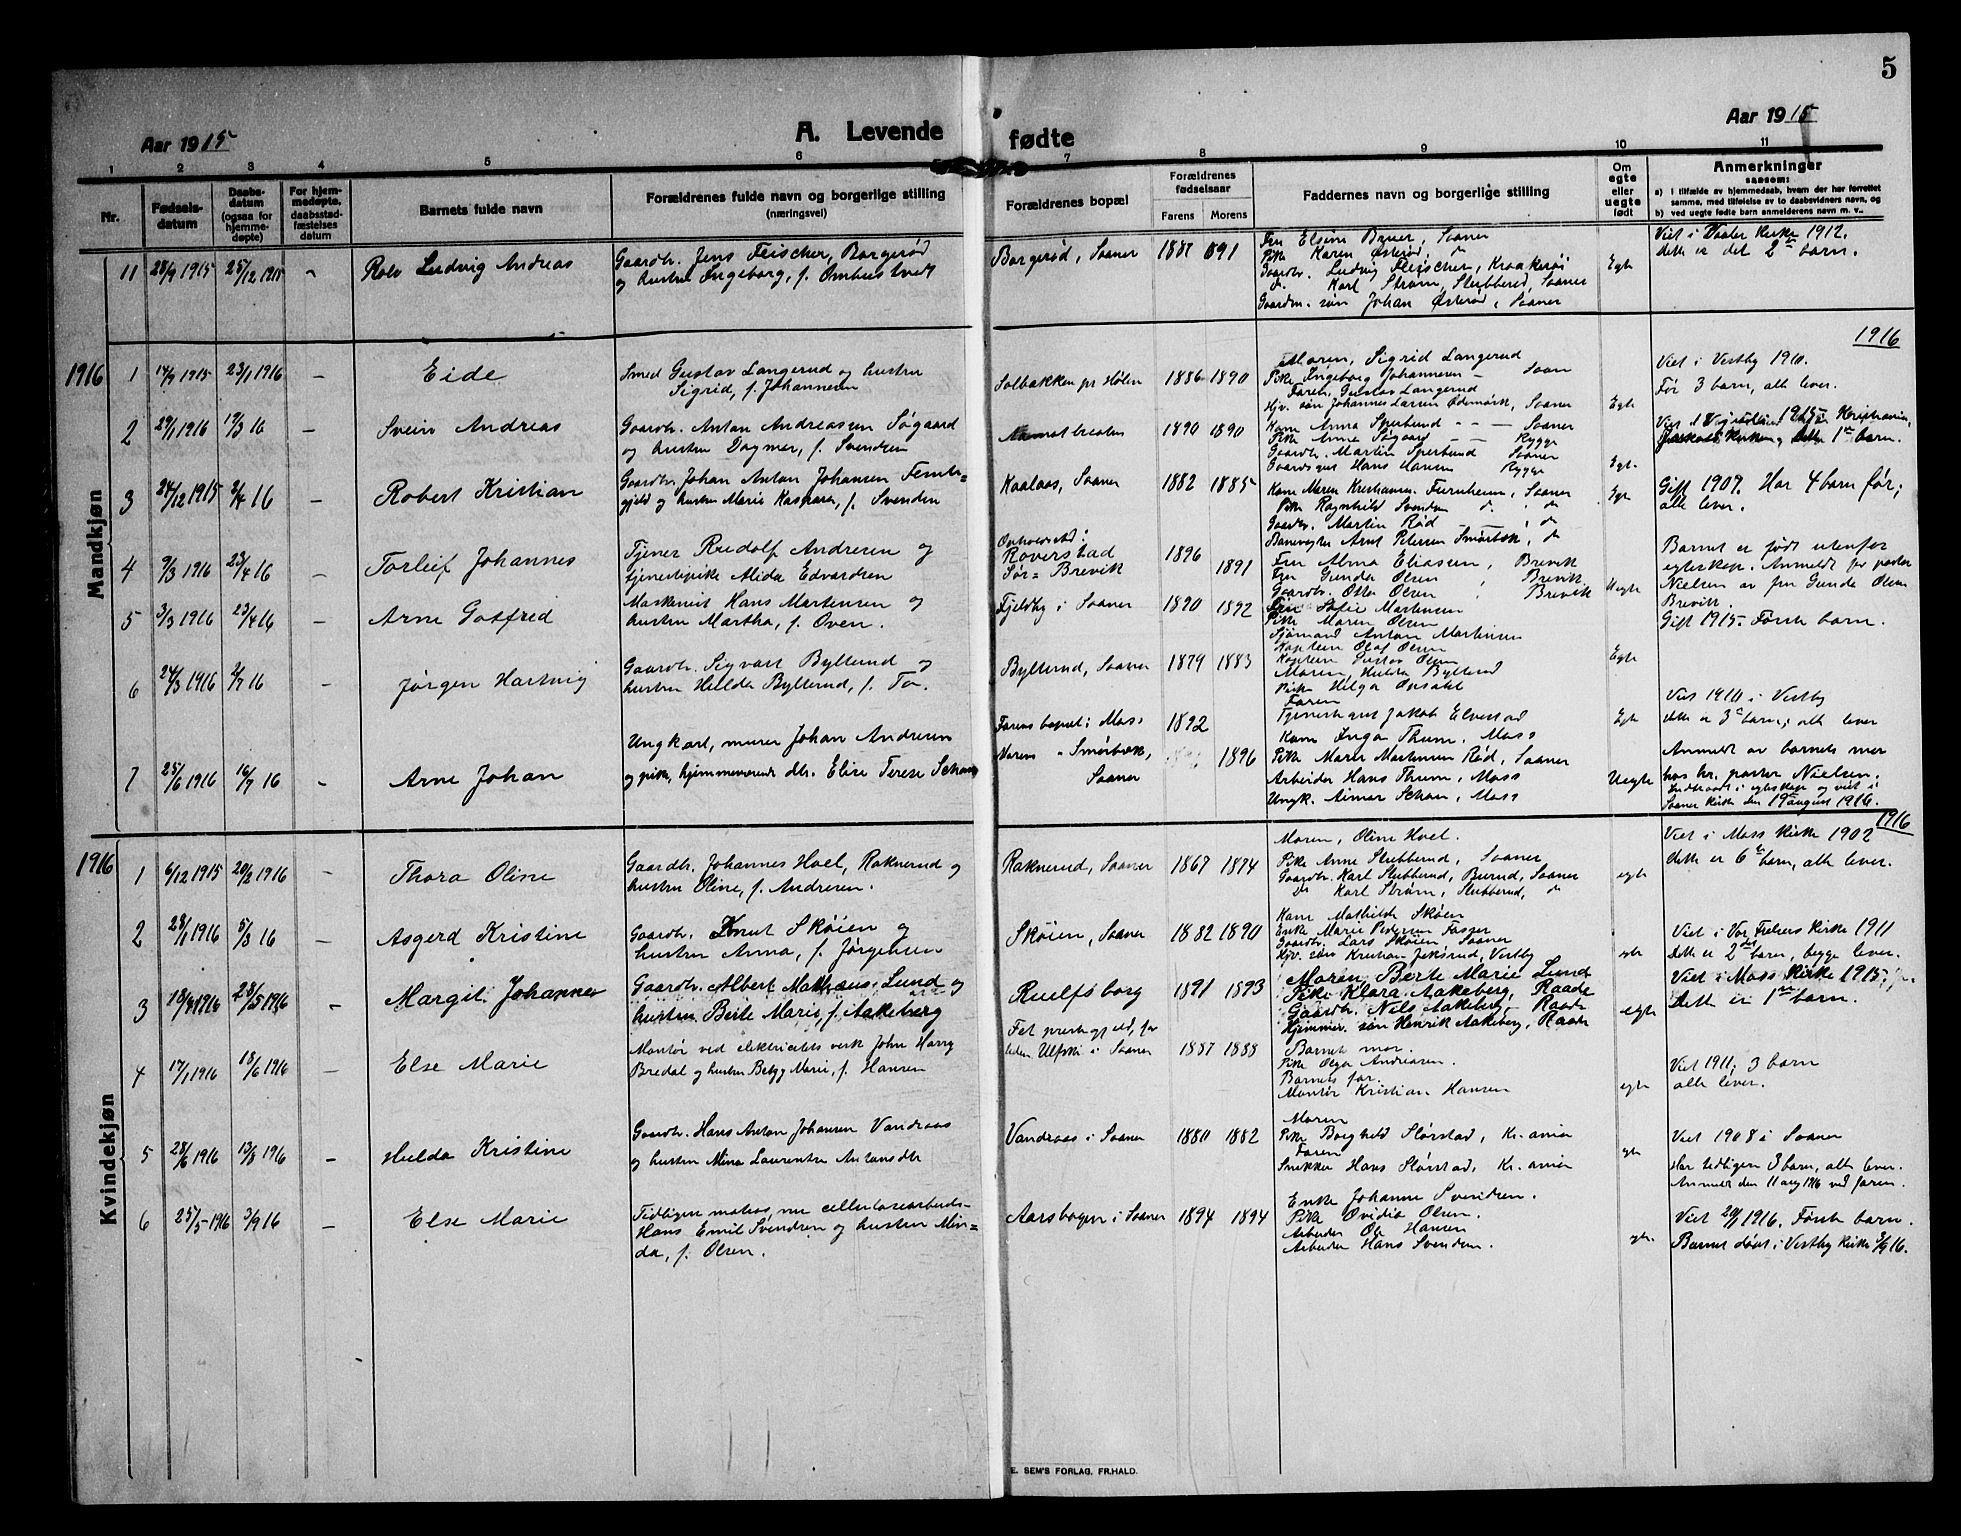 5
Aar 1915
A. Levende fødte
Aar 1915
1 2 3 4 5 6 7 8 9 10 11
Nr.
Fødsels-
datum
Daabs-
datum
(ogsaa for
hjemme-
døpte)
For hjem-
medøpte,
daabsstad-
fæstelses
datum
Barnets fulde navn
Forældrenes fulde navn og borgerlige stilling
(næringsvei)
Forældrenes bopæl
Forældrenes
fødselsaar
Farens. Morens
Faddernes navn og borgerlige stilling
Om
egte
eller
uegte
født
Anmerkninger
saasom:
a) i tilfælde av hjemmedaab, hvem der har forrettet
samme, med tilføielse av to daabsvidners navn, og
b) ved uegte fødte barn anmelderens navn m. v..
11 28/9 1915 25/12 1915 -
Rolv Ludvig Andreas
Gaardbr. Jens Fleischer, Borgerød
og hustru Ingeborg, f. Omhustvedt
Borgerød, Saaner 1881 891
Fru Elsine Bauer, Saaner
Pike Karen Østerød, do
Gaardbr. Ludvig Fleischer, Kraakerøi
do Karl Strøm, Slubberud, Saaner
Gaardm. søn Johan Østerød, Saaner
Egte
Viet i Vaaler Kirke 1912.
dette er det 2det barn.
Mandkjøn
1916
1916
1 14/9 1915 23/1 1916 -
Eide
Smed Gustav Langerud og hustru
Sigrid, f. Johannesen
Solbakken pr Hølen 1886 1890
Moren, Sigrid Langerud
Pike Ingeborg Johannesen - Saan
Faren, Gustav Langerud
Hjv. søn Johannes Larsen Ødemørk, Saaner
Egte
Viet i Vestby 1910.
Før 3 barn, alle lever.
2 29/1 1916 19/3 16 -
Svein Andreas
Gaardbr. Anton Andreassen Søgaard
og hustru Dagmar, f. Svendsen
1890 1890
Kone Anna Sperbund - - - Saaner
Pike Anna Søgaard - - Rygge
Gaardbr. Martin Sperbund Saaner
Gaardsgut Hans Hansen Rygge
Egte.
Kirken, dette 1ste barn.
3 24/12 1915 2/4 16 -
Robert Kristian
Gaardbr. Johan Anton Johansen Femb=
gjeld og hustru Marie Kaspara, f. Svendsen
Kaalaas, Saaner 1882 1885
Kone Maren Kristiansen Furuheim, Saaner
Pike Ragnhild Svendsen do, do
Gaardbr. Martin Rød - , do
Banevogter Arnt Petersen Smørbæk, do
Egte
Gift 1907. Har 4 barn før;
alle lever.
4 9/3 1916 23/4 16 -
Torleif Johannes
Tjener Rudolf Andresen og
tjenestepike Alida Edvardsen
Opholdssted:
Røverstad
Sør=Brevik
1896 1891
Fru Alma Eliassen, Brevik
Fru Gunda Olsen, Brevik
Gaardbr. Otto Olsen, Brevik
Uegte
Barnet er født utenfor
egteskap. Anmeldt for pastor
Nielsen av fru Gunda Olsen
Brevik.
5 3/3 1916 23/4 16 -
Arne Gotfred
Maskinist Hans Martensen og
hustru Martha, f. Oven.
Fjeldby i Saaner 1890 1892
Fru Sofie Martensen
Pike Maren Olsen
Sjømand Anton Martensen
Kaptein Olaf Olsen
Kaptein Gustav Olsen
Egte
Gift 1915. Første barn.
6 24/3 1916 2/7 16 -
Jørgen Hartvig
Gaardbr. Sigvart Bylterud og
hustru Hilda Bylterud, f. To.
Bylterud, Saaner 1879 1883
Moren Hulda Bylterud
Pike Helga Opsahl
Faren
Tjenestegut Jakob Elvestad
Egte
Viet 1910 i Vestby
dette er 3de barn; alle lever
7 25/6 1916 16/7 16 -
Arne Johan
Ungkarl, murer Johan Andresen
og pike, hjemmeværende dtr. Elise Terese Schau
Farens bopæl: Moss 1892
Moren " Smørbæk,
Saaner 1896
Kone Inga Thum. Moss
Pike Marie Martensen Rød, Saaner
Arbeider Hans Thum, Moss
Ungk. Aimar Schau, Moss
Uegte
Anmeldt av barnets mor
hos hr. pastor Nielsen.
Indtraadt i egteskap og viet i
Saaner Kirke den 19de august 1916.
Kvindekjøn
1916
1916
1 6/12 1915 20/2 1916 -
Thora Oline
Gaardbr. Johannes Hoel, Raknerud og
hustru Oline, f. Andresen.
Raknerud, Saaner 1867 1874
Moren, Oline Hoel.
Pike Anne Slubberud, Saaner
Gaardbr. Karl Slubberud, Burud, Saaner
do Karl Strøm, Slubberud, do
egte
Viet i Moss Kirke 1902
dette er 6te barn, alle lever.
2 28/1 1916 5/3 16 -
Asgerd Kristine
Gaardbr. Knut Skøien og
hustru Anna, f. Jørgensen
Skøien, Saaner 1882 1890
Kone Mathilde Skøien
Enke Marie Pedersen Fasper
Gaardbr. Lars Skøien, Saaner
Hjv. søn Kristian Jeksrud, Vestby
egte
Viet i Vor Frelsers Kirke 1911
Dette er 2det barn, begge lever.
3 18/4 1916 28/5 1916 -
Margit Johanne
Gaardbr. Albert Mathæus Lund og
hustru Berte Marie, f. Aakeberg
Ruulfsborg 1891 1893
Moren Berte Marie Lund
Pike Klara Aakeberg, Raade
Gaardbr. Nils Aakeberg, Raade
Hjemmev. søn Henrik Aakeberg, Raade
egte
Viet i Moss Kirke 1915.
Dette er 1ste barn.
4 17/1 1916 18/6 1916 -
Else Marie
Montør ved elektricitets verk John Harry
Bredal og hustru Betzy Marie, f. Hansen
Fet prestegjeld, for
tiden Ulfski i Saaner 1887 1888
Barnets mor.
Pike Olga Andreasen.
Barnets far.
Montør Kristian Hansen
egte
Viet 1911; 3 barn
alle lever.
5 28/6 1916 13/8 1916 -
Hulda Kristine
Gaardbr. Hans Anton Johansen Vandraas
og hustru Mina Laurentse Antonsdtr
Vandraas i Saaner 1880 1882
Moren
Pike Borghild Slørstad, Kr.ania
Faren
Snekker Hans Slørstad, Kr.ania
egte
Viet 1908 i Saaner
Har tidligere 3 barn, alle lever.
Anmeldt den 11 aug 1916 ved faren.
6 25/5-1916 3/9 16 -
Else Marie
Tidligere matros, nu cellulosearbeids-
Hans Emil Svendsen og hustru Min=
da, f. Olsen.
Aarsbogen i Saaner 1894 1894
Enke Johanne Svendsen.
Pike Ovidia Olsen.
Arbeider Ole Hansen
Arbeider Hans Svendsen.
egte.
Viet 20/1 1916. Første barn.
Barnet døbt i Vestby Kirke 3/9 16.
E. SEM'S FORLAG, FR.HALD.